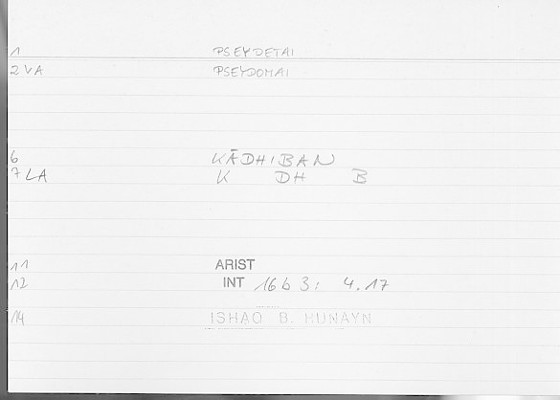 1 PSEYDETAI
2 VA PSEYDOMAI
6 KĀDHIBAN
7 LA K DH B
11 ARIST
12 INT 16 b 3 : 4.17
14 ISHAQ B. HUNAYN